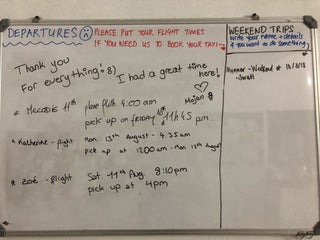 DEPARTURES
PLEASE PUT YOUR FLIGHT TIMES
IF YOU NEED US TO BOOK YOUR TAXI
WEEKEND TRIPS
Write your name + details
if you want to do something
Thank you
for everything! 8)
I had a great time
here!
Mojan
* Mercedes 11th plane flight 4:00 am
pick up on friday 10th 11h45 pm.
* Katherine - flight Mon 13th August - 4.35am
pick up at 1200am - Mon 13th August
* Zoé - flight Sat. 11th Aug. 8:10pm
pick up at 4pm